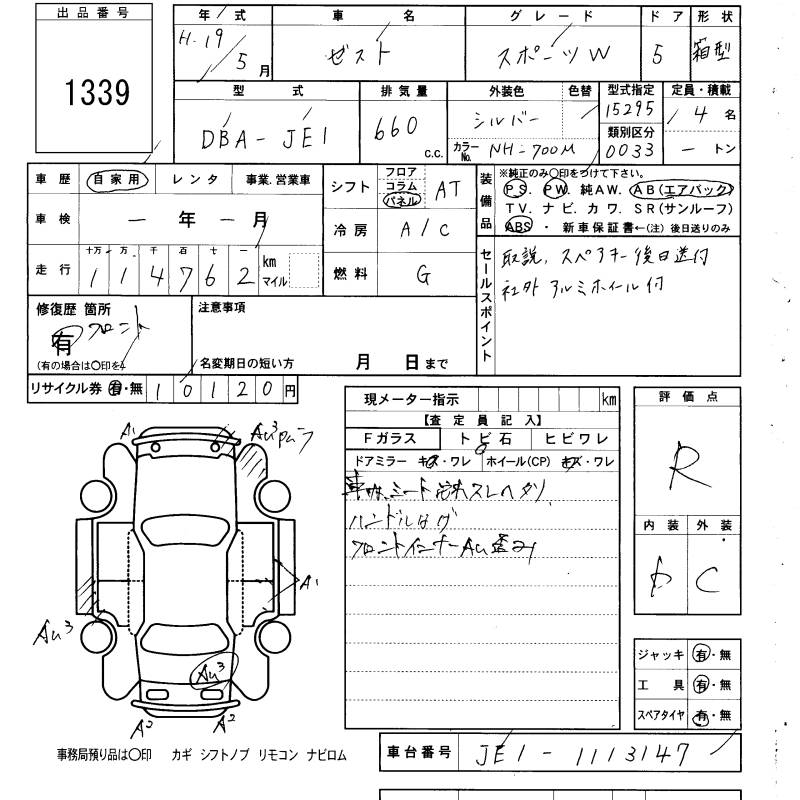 出品番号
1339
年式 車名 グレード ドア 形状
H-19/5月 ゼスト スポーツW 5 箱型
型式 排気量 外装色 色替 型式指定 定員・積載
DBA-JE1 660 c.c. シルバー 15295 4名
カラーNo. NH-700M 類別区分 0033 ートン
車歴 自家用 レンタ 事業.営業車
車検 ー年ー月
走行 十万 万 千 百 十 一 km マイル
114762
シフト フロア コラム パネル AT
冷房 A/C
燃料 G
装備品 ※純正のみ○印をつけて下さい。
PS. PW. 純AW. AB(エアバック)
TV. ナビ. カワ. SR(サンルーフ)
ABS ・ 新車保証書←(注)後日送りのみ
セールスポイント
取説,スペアキー後日送付
社外アルミホイール付
修復歴 箇所 注意事項
有 フロント
(有の場合は○印を
名変期日の短い方 月 日まで
リサイクル券 有・無 10120円
現メーター指示 km
【査定員記入】
Fガラス トビ石 ヒビワレ
ドアミラー キズ・ワレ ホイール(CP) キズ・ワレ
シート スレヘタリ
ハンドルハゲ
フロントインナーAu歪み
評価点
R
内装 外装
C
A1 Au3
A1
Au3
Au3
A2 A2
ジャッキ 有・無
工具 有・無
スペアタイヤ 有・無
事務局預り品は○印 カギ シフトノブ リモコン ナビロム
車台番号 JE1-1113147